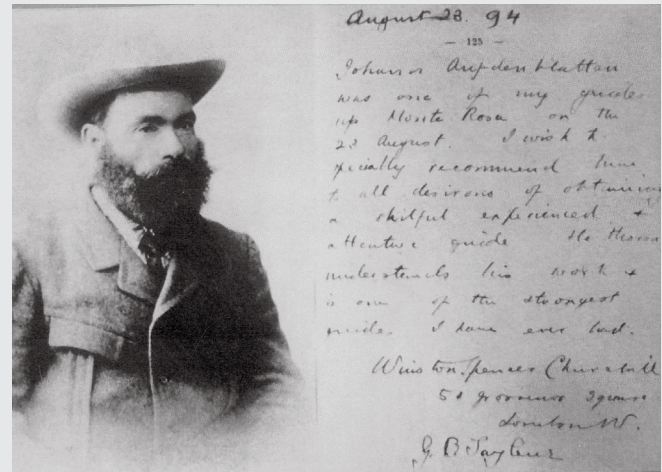 August 23. 94
— 125 —
Johann Aufdenblatten
was one of my guides
up Monte Rosa on the
23 August. I wish to
specially recommend him
to all desirous of obtaining
a skilful experienced +
attentive guide. He thoro
understands his work +
is one of the strongest
guides I have ever had.
Winston Spencer Churchill
50 Grosvenor Square
London W.
G. B.